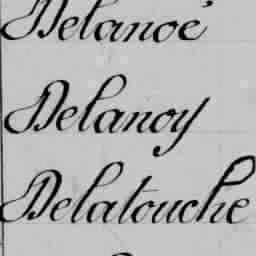 Delanoë
Delanoy
Delatouche